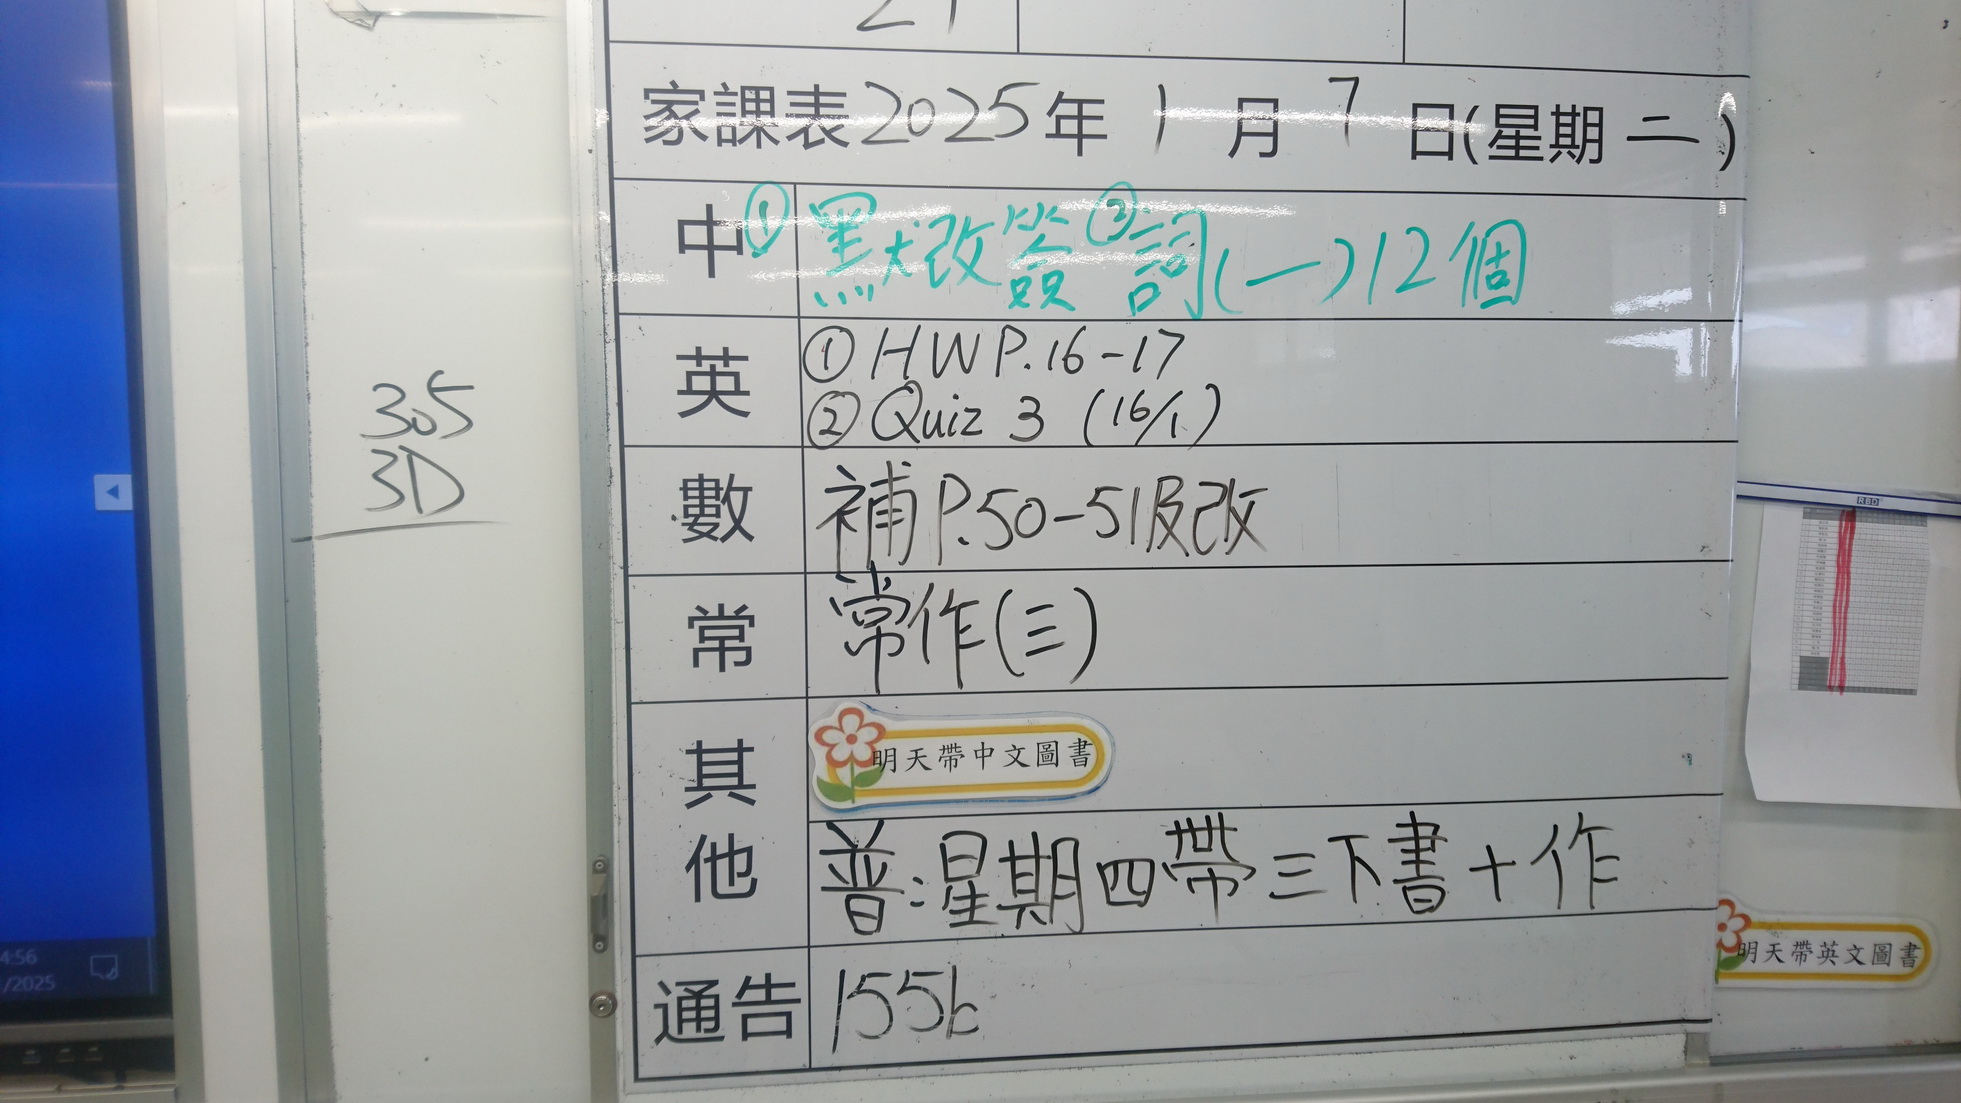 305
3D
家課表2025年 1 月 7 日(星期 二 )
中 ①默改簽 ②詞(一)12個
英 ①HW P.16-17
②Quiz 3 (16/1)
數 補P.50-51及改
常 常作(三)
其他 明天帶中文圖書
普:星期四帶三下書+作
通告 155b
明天帶英文圖書
4:56
/2025
RBD